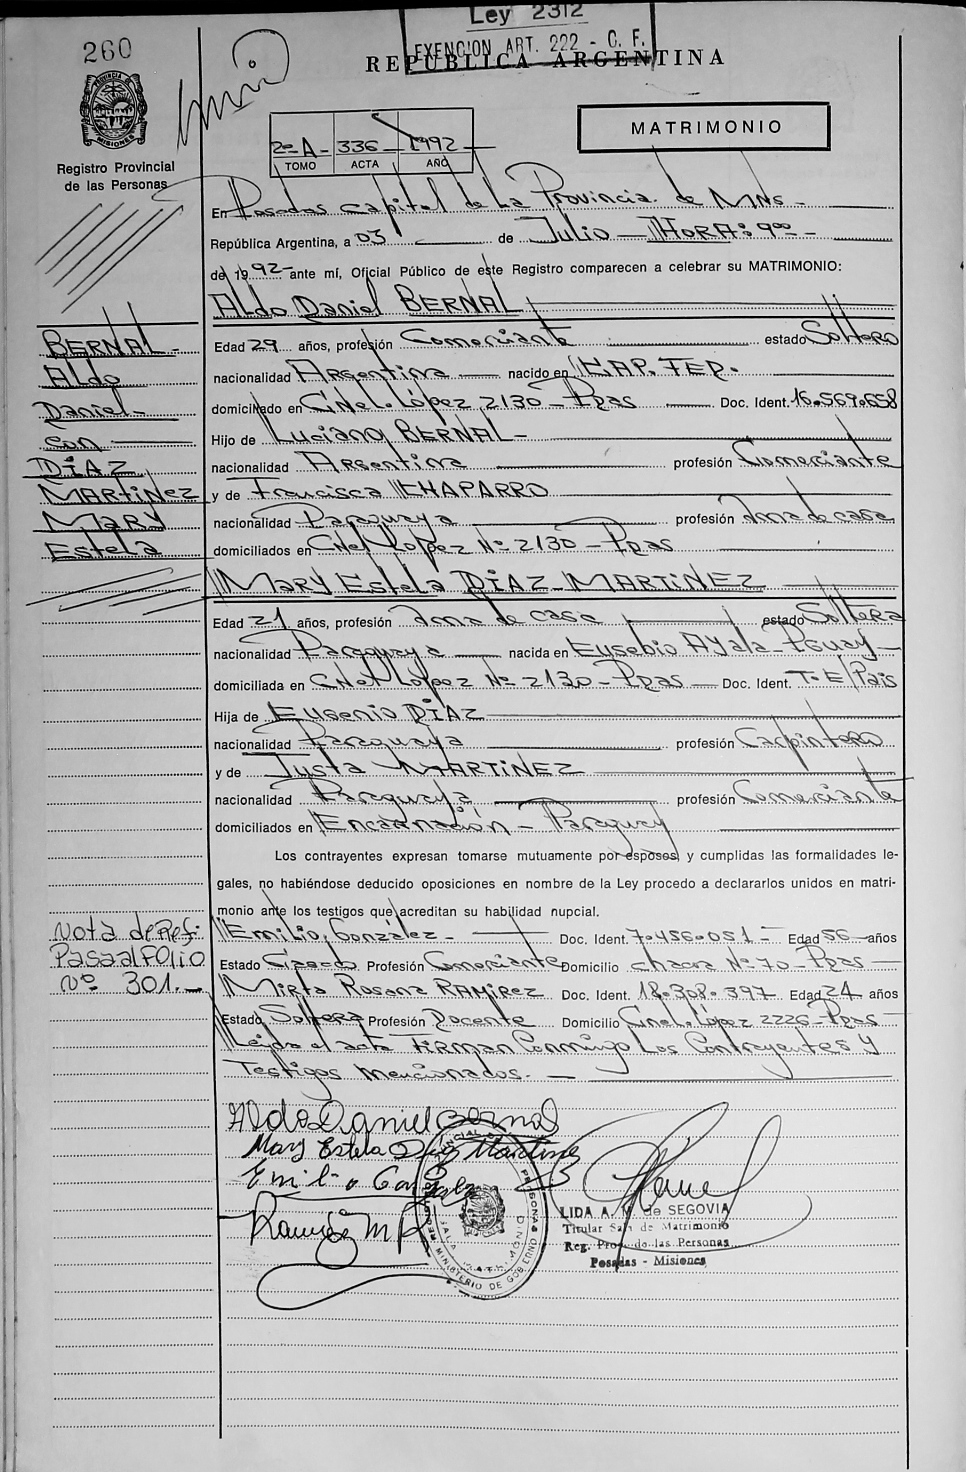 Ley 2312
EXENCION ART. 222 - C. F.
260
REPUBLICA ARGENTINA
MATRIMONIO
2º A - 336 - 1992 -
TOMO ACTA AÑO
Registro Provincial
de las Personas
En Posadas capital de La Provincia de MNs -
República Argentina, a 03 de Julio HORA: 9ºº -
de 1992 - ante mí, Oficial Público de este Registro comparecen a celebrar su MATRIMONIO:
Aldo Daniel BERNAL
Edad 29 años, profesión Comerciante estado Soltero
nacionalidad Argentina nacido en CAP. FED.
domiciliado en Cnel. López 2130 - Ppas Doc. Ident. 16.569.658
Hijo de Luciano BERNAL -
nacionalidad Argentina profesión Comerciante
y de Francisca CHAPARRO
nacionalidad Paraguaya profesión ama de casa
domiciliados en Cnel López Nº 2130 - Ppas
Mary Estela DÍAZ MARTINEZ
Edad 21 años, profesión ama de casa estado Soltera
nacionalidad Paraguaya nacida en Eusebio Ayala - Pguay -
domiciliada en Cnel López Nº 2130 - Ppas Doc. Ident. T.E/Pais
Hija de Eugenio DÍAZ
nacionalidad Paraguaya profesión Carpintero
y de Justa MARTINEZ
nacionalidad Paraguaya profesión Comerciante
domiciliados en Encarnación - Paraguay
Los contrayentes expresan tomarse mutuamente por esposos, y cumplidas las formalidades le-
gales, no habiéndose deducido oposiciones en nombre de la Ley procedo a declararlos unidos en matri-
monio ante los testigos que acreditan su habilidad nupcial.
Emilio González - Doc. Ident. 7.456.051 - Edad 56 años
Estado Casado Profesión Comerciante Domicilio chacra Nº 70 - Ppas
Mirta Rosana RAMIREZ Doc. Ident. 18.308.397 Edad 24 años
Estado Soltera Profesión Docente Domicilio Cnel. López 2226 - Ppas
Leida el acta Firman Conmigo Los Contrayentes y
Testigos mencionados. -
BERNAL -
Aldo
Daniel -
con
DÍAZ
MARTINEZ
Mary
Estela
Nota de Ref:
Pasa al FOLIO
Nº 301. -
Aldo Daniel Bernal
Mary Estela Díaz Martínez
Emilio González
Ramírez M R
LIDA A. de SEGOVIA
Titular Sala de Matrimonio
Reg. Prov. de las Personas
Posadas - Misiones